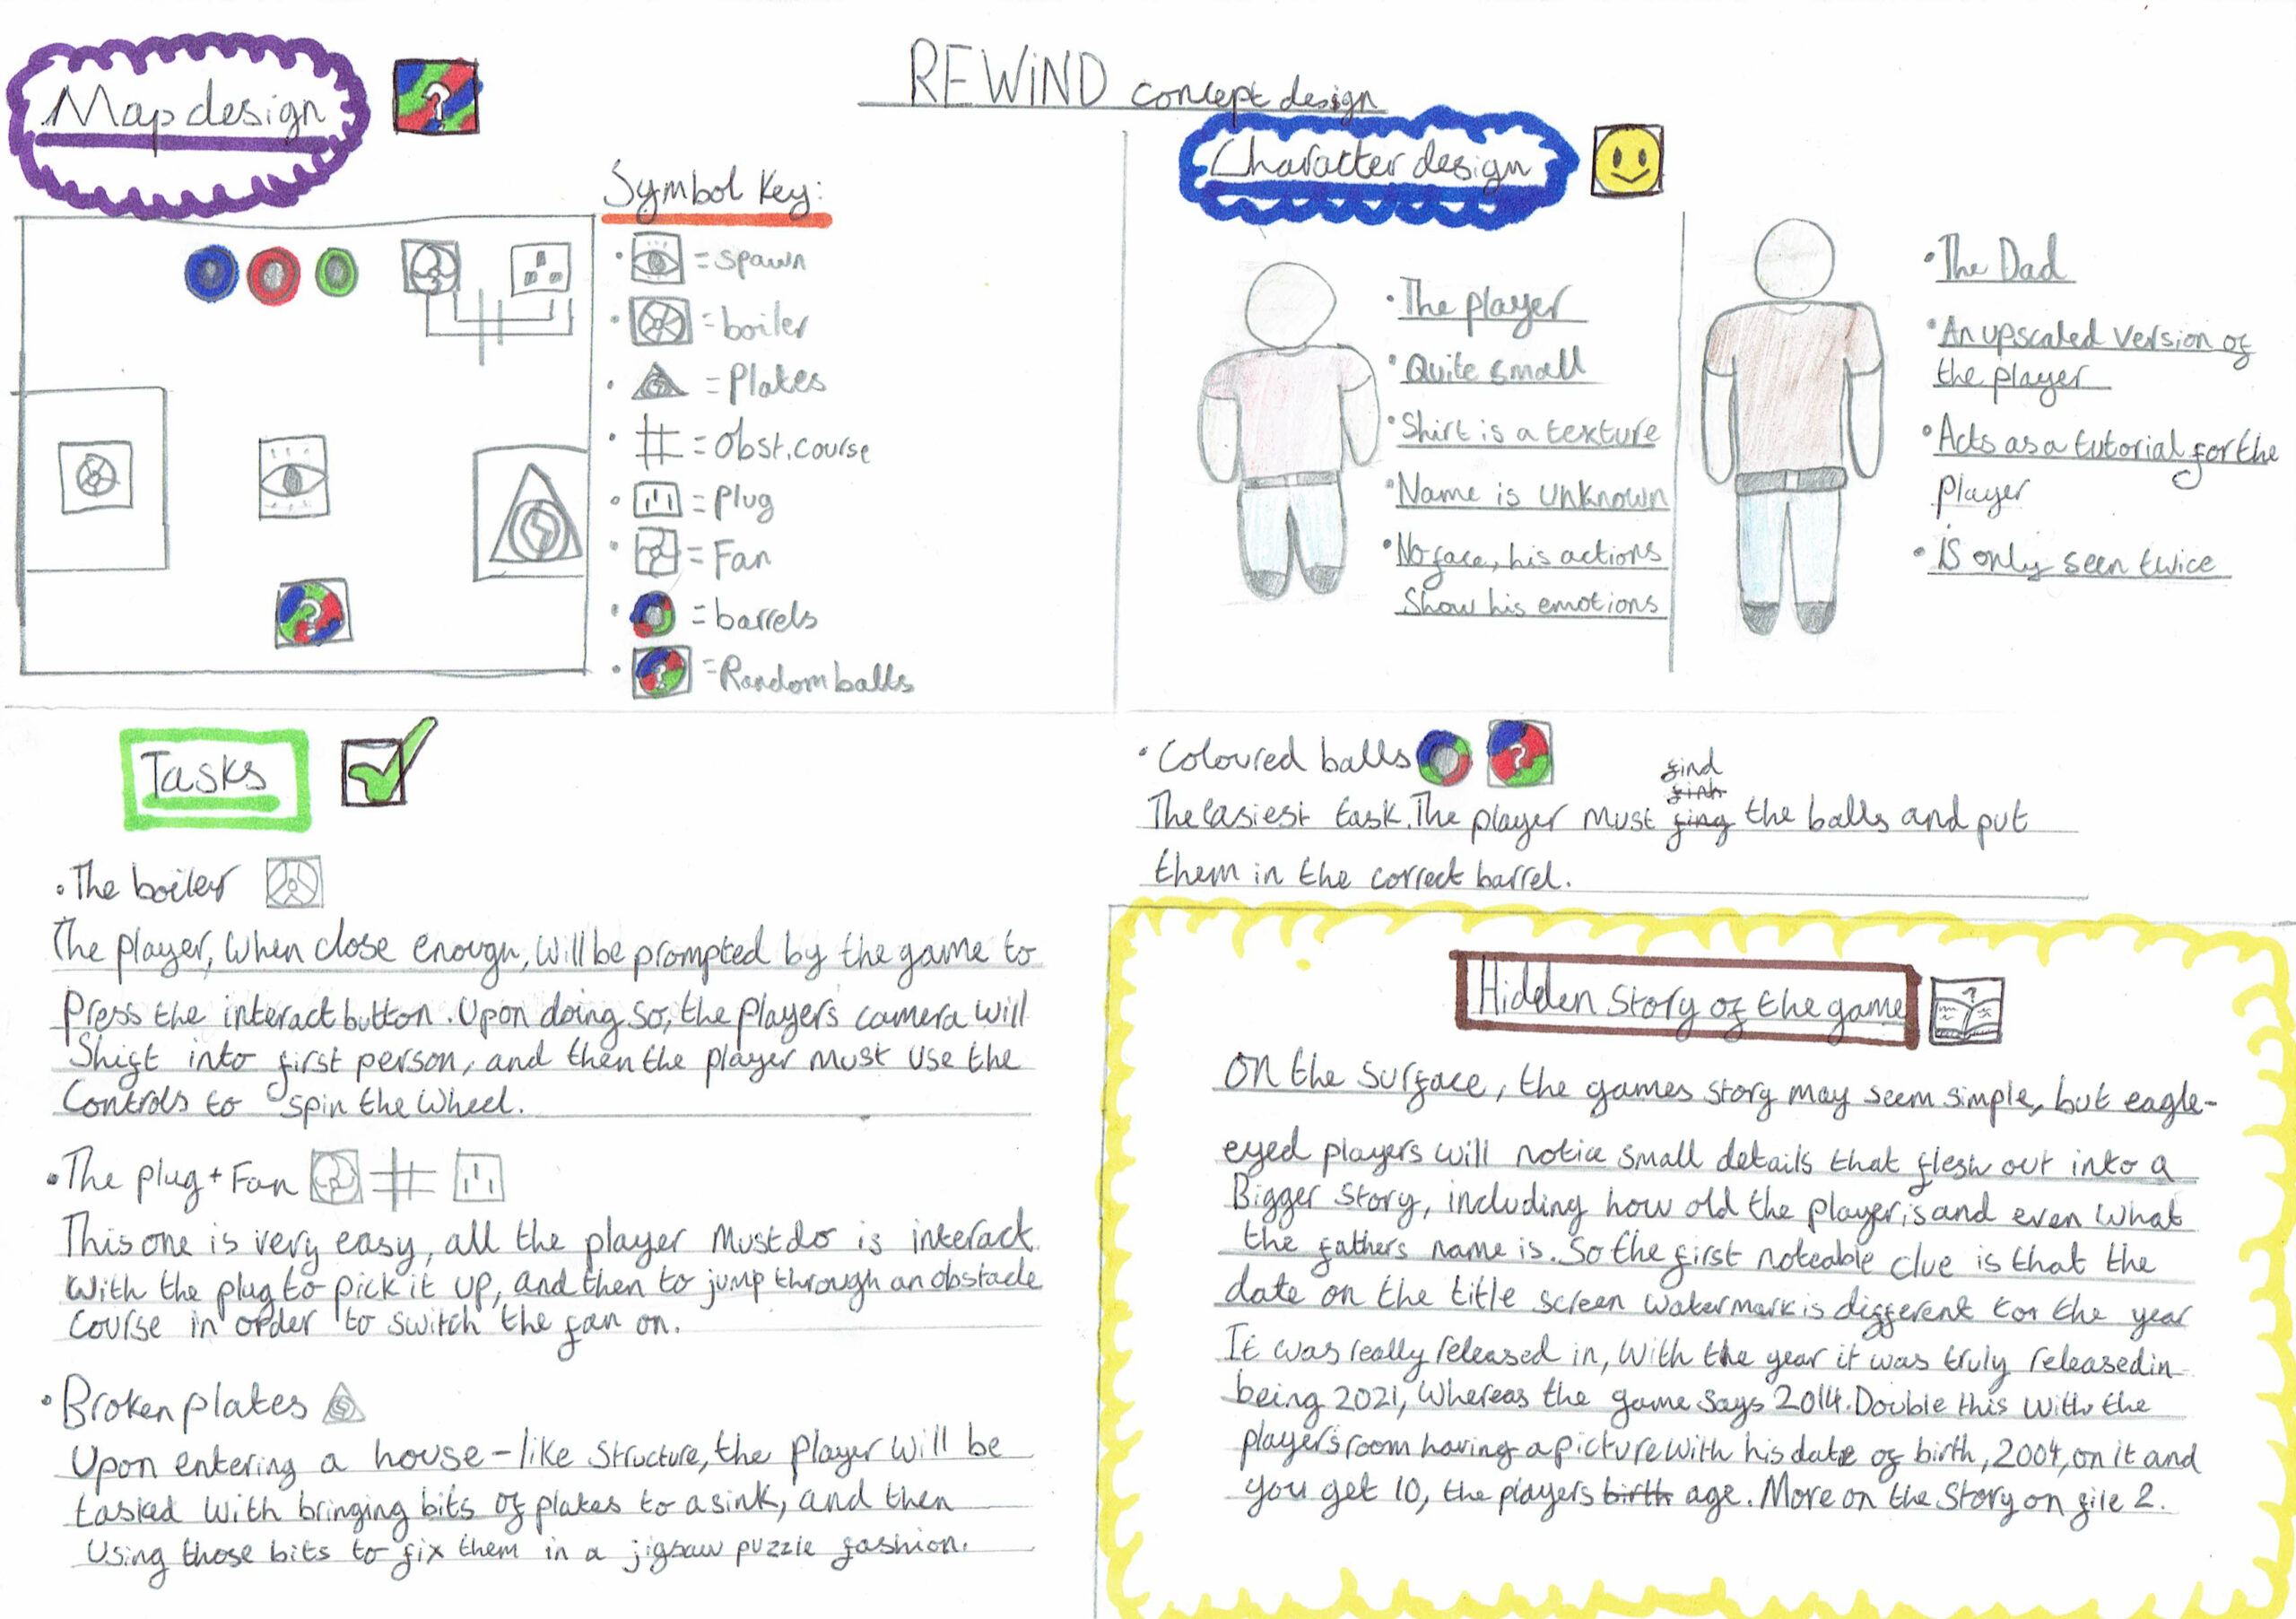 REWIND concept design
Map design
Symbol Key:
• = spawn
• = boiler
• = Plates
• = obst. course
• = plug
• = Fan
• = barrels
• = Random balls
Character design
• The player
• Quite small
• Shirt is a texture
• Name is unknown
• No face, his actions
Show his emotions
• The Dad
• An upscaled version of
the player
• Acts as a tutorial for the
player
• Is only seen twice
Tasks
• The boiler
The player, when close enough, will be prompted by the game to
press the interact button. Upon doing so, the players camera will
Shift into first person, and then the player must use the
Controls to spin the wheel.
• The plug + Fan
This one is very easy, all the player must do is interact
with the plug to pick it up, and then to jump through an obstacle
course in order to switch the fan on.
• Broken plates
Upon entering a house-like structure, the player will be
tasked with bringing bits of plates to a sink, and then
using those bits to fix them in a jigsaw puzzle fashion.
• Coloured balls
find
The easiest task. The player must fing the balls and put
them in the correct barrel.
Hidden Story of the game
On the surface, the games story may seem simple, but eagle-
eyed players will notice small details that flesh out into a
Bigger story, including how old the player is and even what
the fathers name is. So the first noteable clue is that the
date on the title screen watermark is different for the year
It was really released in, with the year it was truly released in
being 2021, whereas the game says 2014. Double this with the
players room having a picture with his date of birth, 2004, on it and
you get 10, the players birth age. More on the story on file 2.